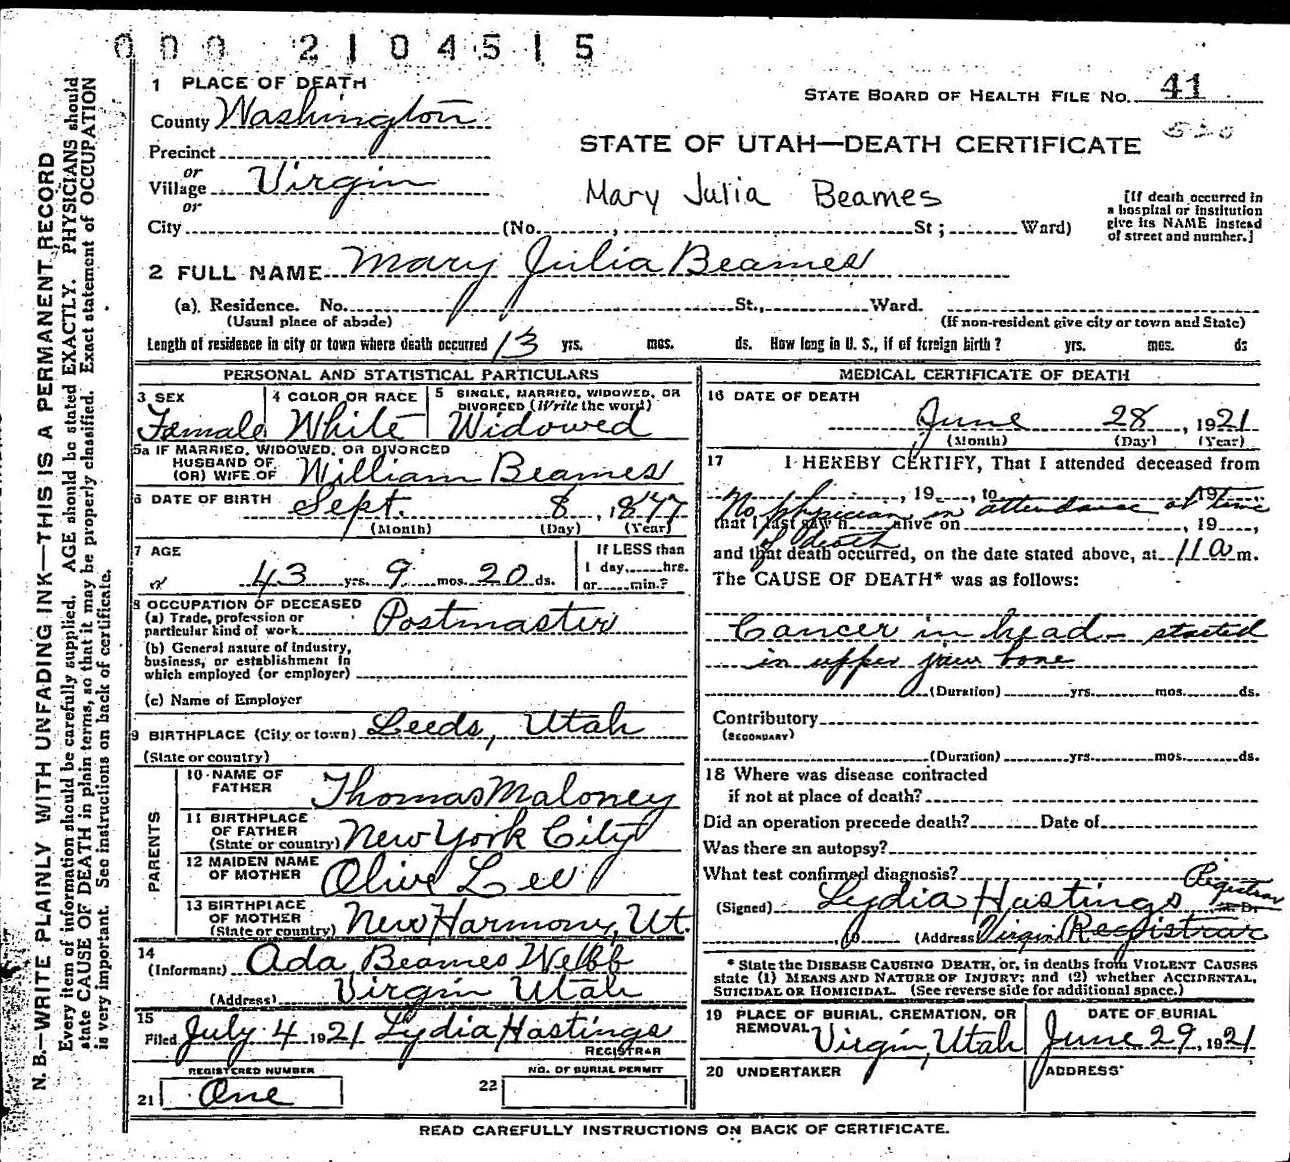 000 2104515
1 PLACE OF DEATH
STATE BOARD OF HEALTH FILE No. 41
County Washington
530
STATE OF UTAH—DEATH CERTIFICATE
Precinct
or
Village Virgin
or
Mary Julia Beames
[If death occurred in
a hospital or institution
give its NAME instead
of street and number.]
City (No. , St ; Ward)
2 FULL NAME Mary Julia Beames
(a) Residence. No. St., Ward.
(Usual place of abode) (If non-resident give city or town and State)
Length of residence in city or town where death occurred 13 yrs. mos. ds. How long in U. S., if of foreign birth? yrs. mos. ds
PERSONAL AND STATISTICAL PARTICULARS
3 SEX
Female
4 COLOR OR RACE
White
5 SINGLE, MARRIED, WIDOWED, OR
DIVORCED (Write the word)
Widowed
5a IF MARRIED, WIDOWED, OR DIVORCED
HUSBAND OF
(OR) WIFE OF William Beames
6 DATE OF BIRTH Sept. 8, 1877
(Month) (Day) (Year)
7 AGE
43 yrs. 9 mos. 20 ds.
If LESS than
1 day, hrs.
or min.?
8 OCCUPATION OF DECEASED
(a) Trade, profession or
particular kind of work Postmaster
(b) General nature of Industry,
business, or establishment in
which employed (or employer)
(c) Name of Employer
9 BIRTHPLACE (City or town) Leeds, Utah
(State or country)
PARENTS
10 NAME OF
FATHER Thomas Maloney
11 BIRTHPLACE
OF FATHER
(State or country) New York City
12 MAIDEN NAME
OF MOTHER Olive Lee
13 BIRTHPLACE
OF MOTHER
(State or country) New Harmony, Ut.
14
(Informant) Ada Beames Webb
(Address) Virgin Utah
15
Filed July 4 1921 Lydia Hastings
REGISTRAR
REGISTERED NUMBER
21 One
NO. OF BURIAL PERMIT
22
MEDICAL CERTIFICATE OF DEATH
16 DATE OF DEATH
June 28, 1921
(Month) (Day) (Year)
17 I HEREBY CERTIFY, That I attended deceased from
, 19 , to 19
No physician in attendance at time
that I last saw h alive on , 19 ,
of death
and that death occurred, on the date stated above, at 11 a m.
The CAUSE OF DEATH* was as follows:
Cancer in head - started
in upper jaw bone
(Duration) yrs. mos. ds.
Contributory
(SECONDARY)
(Duration) yrs. mos. ds.
18 Where was disease contracted
if not at place of death?
Did an operation precede death? Date of
Was there an autopsy?
What test confirmed diagnosis?
Registrar
(Signed) Lydia Hastings M. D.
, 19 (Address Virgin Registrar
* State the DISEASE CAUSING DEATH, or, in deaths from VIOLENT CAUSES
state (1) MEANS AND NATURE OF INJURY; and (2) whether ACCIDENTAL,
SUICIDAL OR HOMICIDAL. (See reverse side for additional space.)
19 PLACE OF BURIAL, CREMATION, OR
REMOVAL Virgin, Utah
DATE OF BURIAL
June 29, 1921
20 UNDERTAKER
ADDRESS
READ CAREFULLY INSTRUCTIONS ON BACK OF CERTIFICATE.
N. B.—WRITE PLAINLY WITH UNFADING INK—THIS IS A PERMANENT RECORD
Every item of information should be carefully supplied. AGE should be stated EXACTLY. PHYSICIANS should
state CAUSE OF DEATH in plain terms, so that it may be properly classified. Exact statement of OCCUPATION
is very important. See instructions on back of certificate.